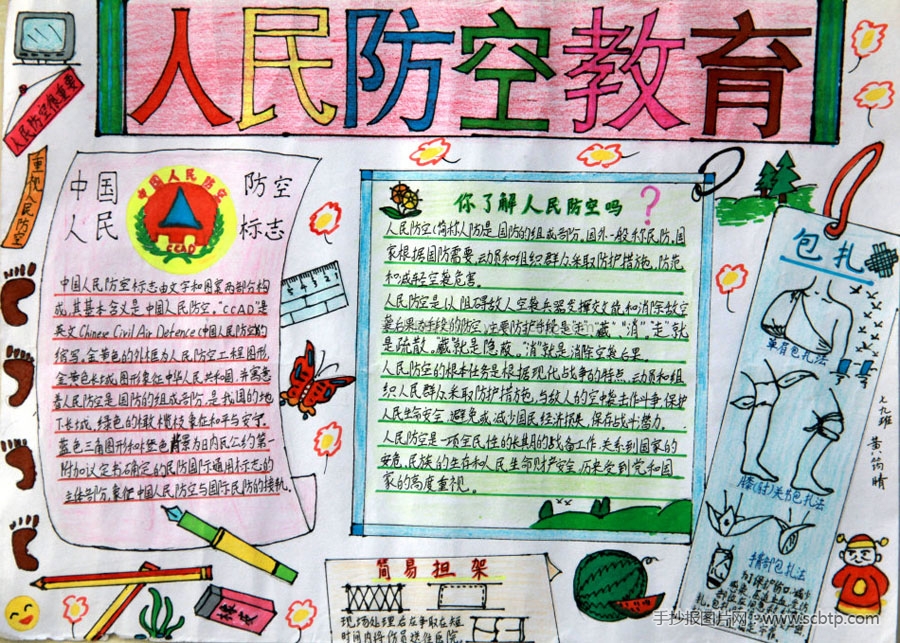 人民防空教育
人民防空很重要
重视人民防空
中国
人民
防空
标志
中国人民防空
CCAD
中国人民防空标志由文字和图案两部分构
成,其基本含义是中国人民防空。"CCAD"是
英文Chinese Civil Air Defence(中国人民防空)的
缩写。金黄色的外框为人民防空工程图形,
金黄色长城图形象征中华人民共和国,并寓意
着人民防空是国防的组成部分,是我国的地
下长城,绿色的橄榄枝象征和平与安宁。
蓝色三角图形和橙色背景为日内瓦公约第一
附加议定书确定的民防国际通用标志的
主体部分,象征中国人民防空与国际民防的接轨。
你了解人民防空吗?
人民防空(简称人防)是国防的组成部分。国外一般称民防。国
家根据国防需要,动员和组织群众采取防护措施,防范
和减轻空袭危害。
人民防空是以阻碍敌人空袭兵器发挥效能和消除敌空
袭后果为手段的防空,主要防护手段是"走""藏""消","走"就
是疏散,"藏"就是隐蔽,"消"就是消除空袭后果。
人民防空的根本任务是根据现代战争的特点,动员和组
织人民群众采取防护措施,与敌人的空中袭击作斗争,保护
人民生命安全,避免或减少国民经济损失,保存战斗潜力。
人民防空是一项全民性的长期的战备工作,关系到国家的
安危,民族的生存和人民生命财产安全,历来受到党和国
家的高度重视。
包扎
单肩包扎法
膝(肘)关节包扎法
精部包扎法
七九班 黄筠晴
1 2 3 4 5
橡皮
简易担架
现场处理后应争取在短
时间内将伤员送往医院
手抄报图片网 www.scbtp.com